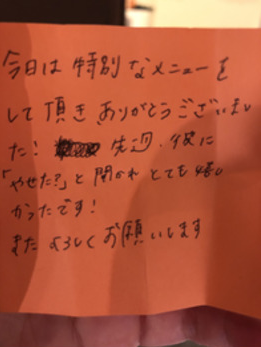 今日は特別なメニューを
して頂きありがとうございまし
た! 先週、彼に
「やせた?」と聞かれとても嬉し
かったです!
またよろしくお願いします